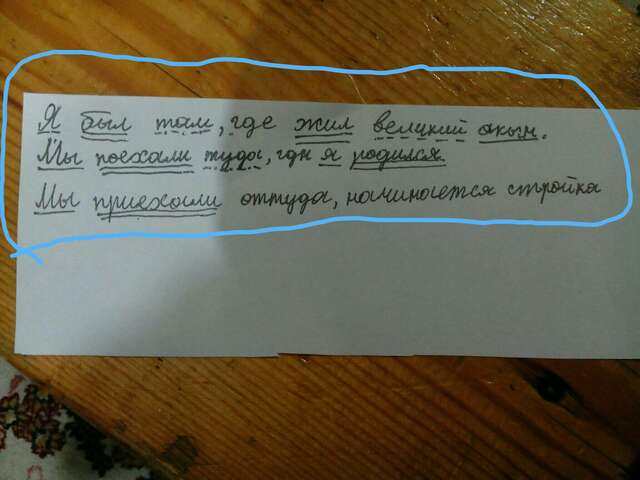 Я был там, где жил великий акын.
Мы поехали туда, где я родился.
Мы приехали оттуда, начинается стройка